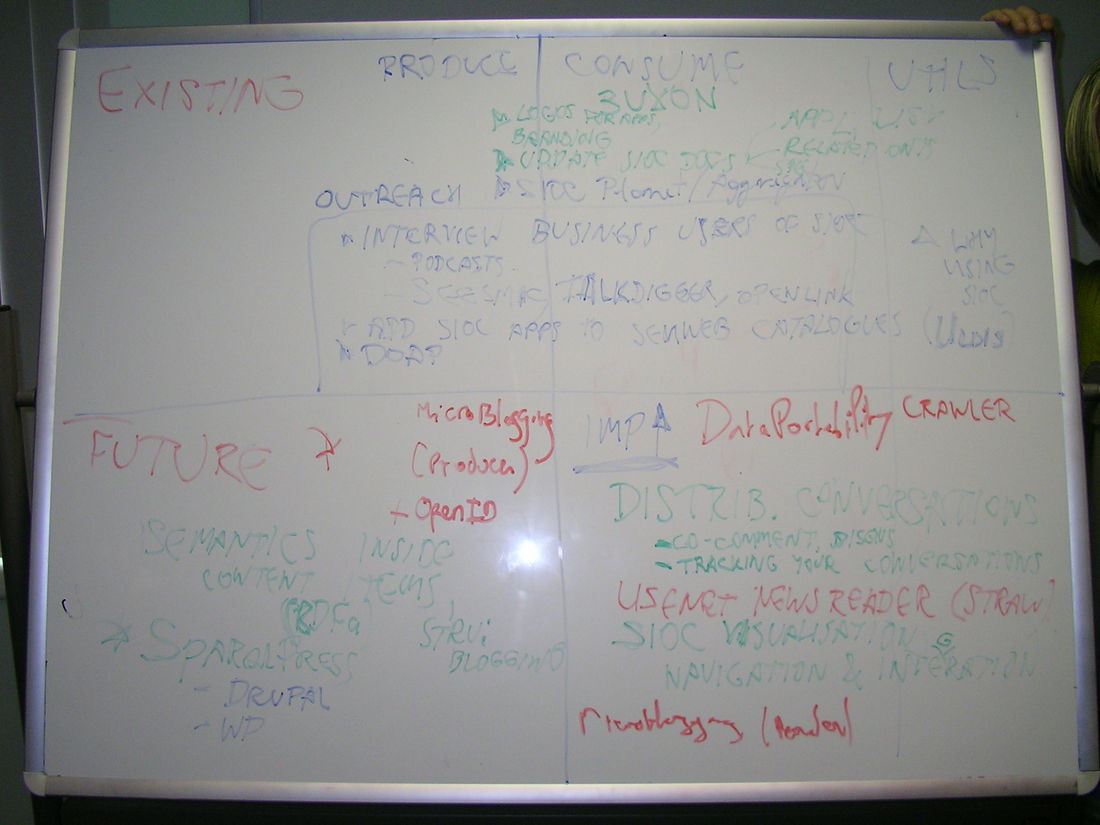 EXISTING
PRODUCE
CONSUME
UTILS
BUXON
LOGOS FOR APPS,
BRANDING
UPDATE SIOC DOCS
APPL. LIST
RELATED ONTS
OUTREACH
SIOC Planet / Aggregator
INTERVIEW BUSINESS USERS OF SIOC
- PODCASTS
- SEESMIC, TALKDIGGER, OPENLINK
WHY
USING
SIOC
ADD SIOC APPS TO SEMWEB CATALOGUES
DOAP
FUTURE
MicroBlogging
(Producer)
+ OpenID
IMP
DataPortability CRAWLER
SEMANTICS INSIDE
CONTENT ITEMS
(RDFa)
DISTRIB. CONVERSATIONS
- CO-COMMENT, DISQUS
- TRACKING YOUR CONVERSATIONS
USENET NEWSREADER (STRAW)
SPARQLPRESS
- DRUPAL
- WP
BLOGGING
SIOC VISUALISATION
NAVIGATION & INTERATION
Microblogging (Reader)